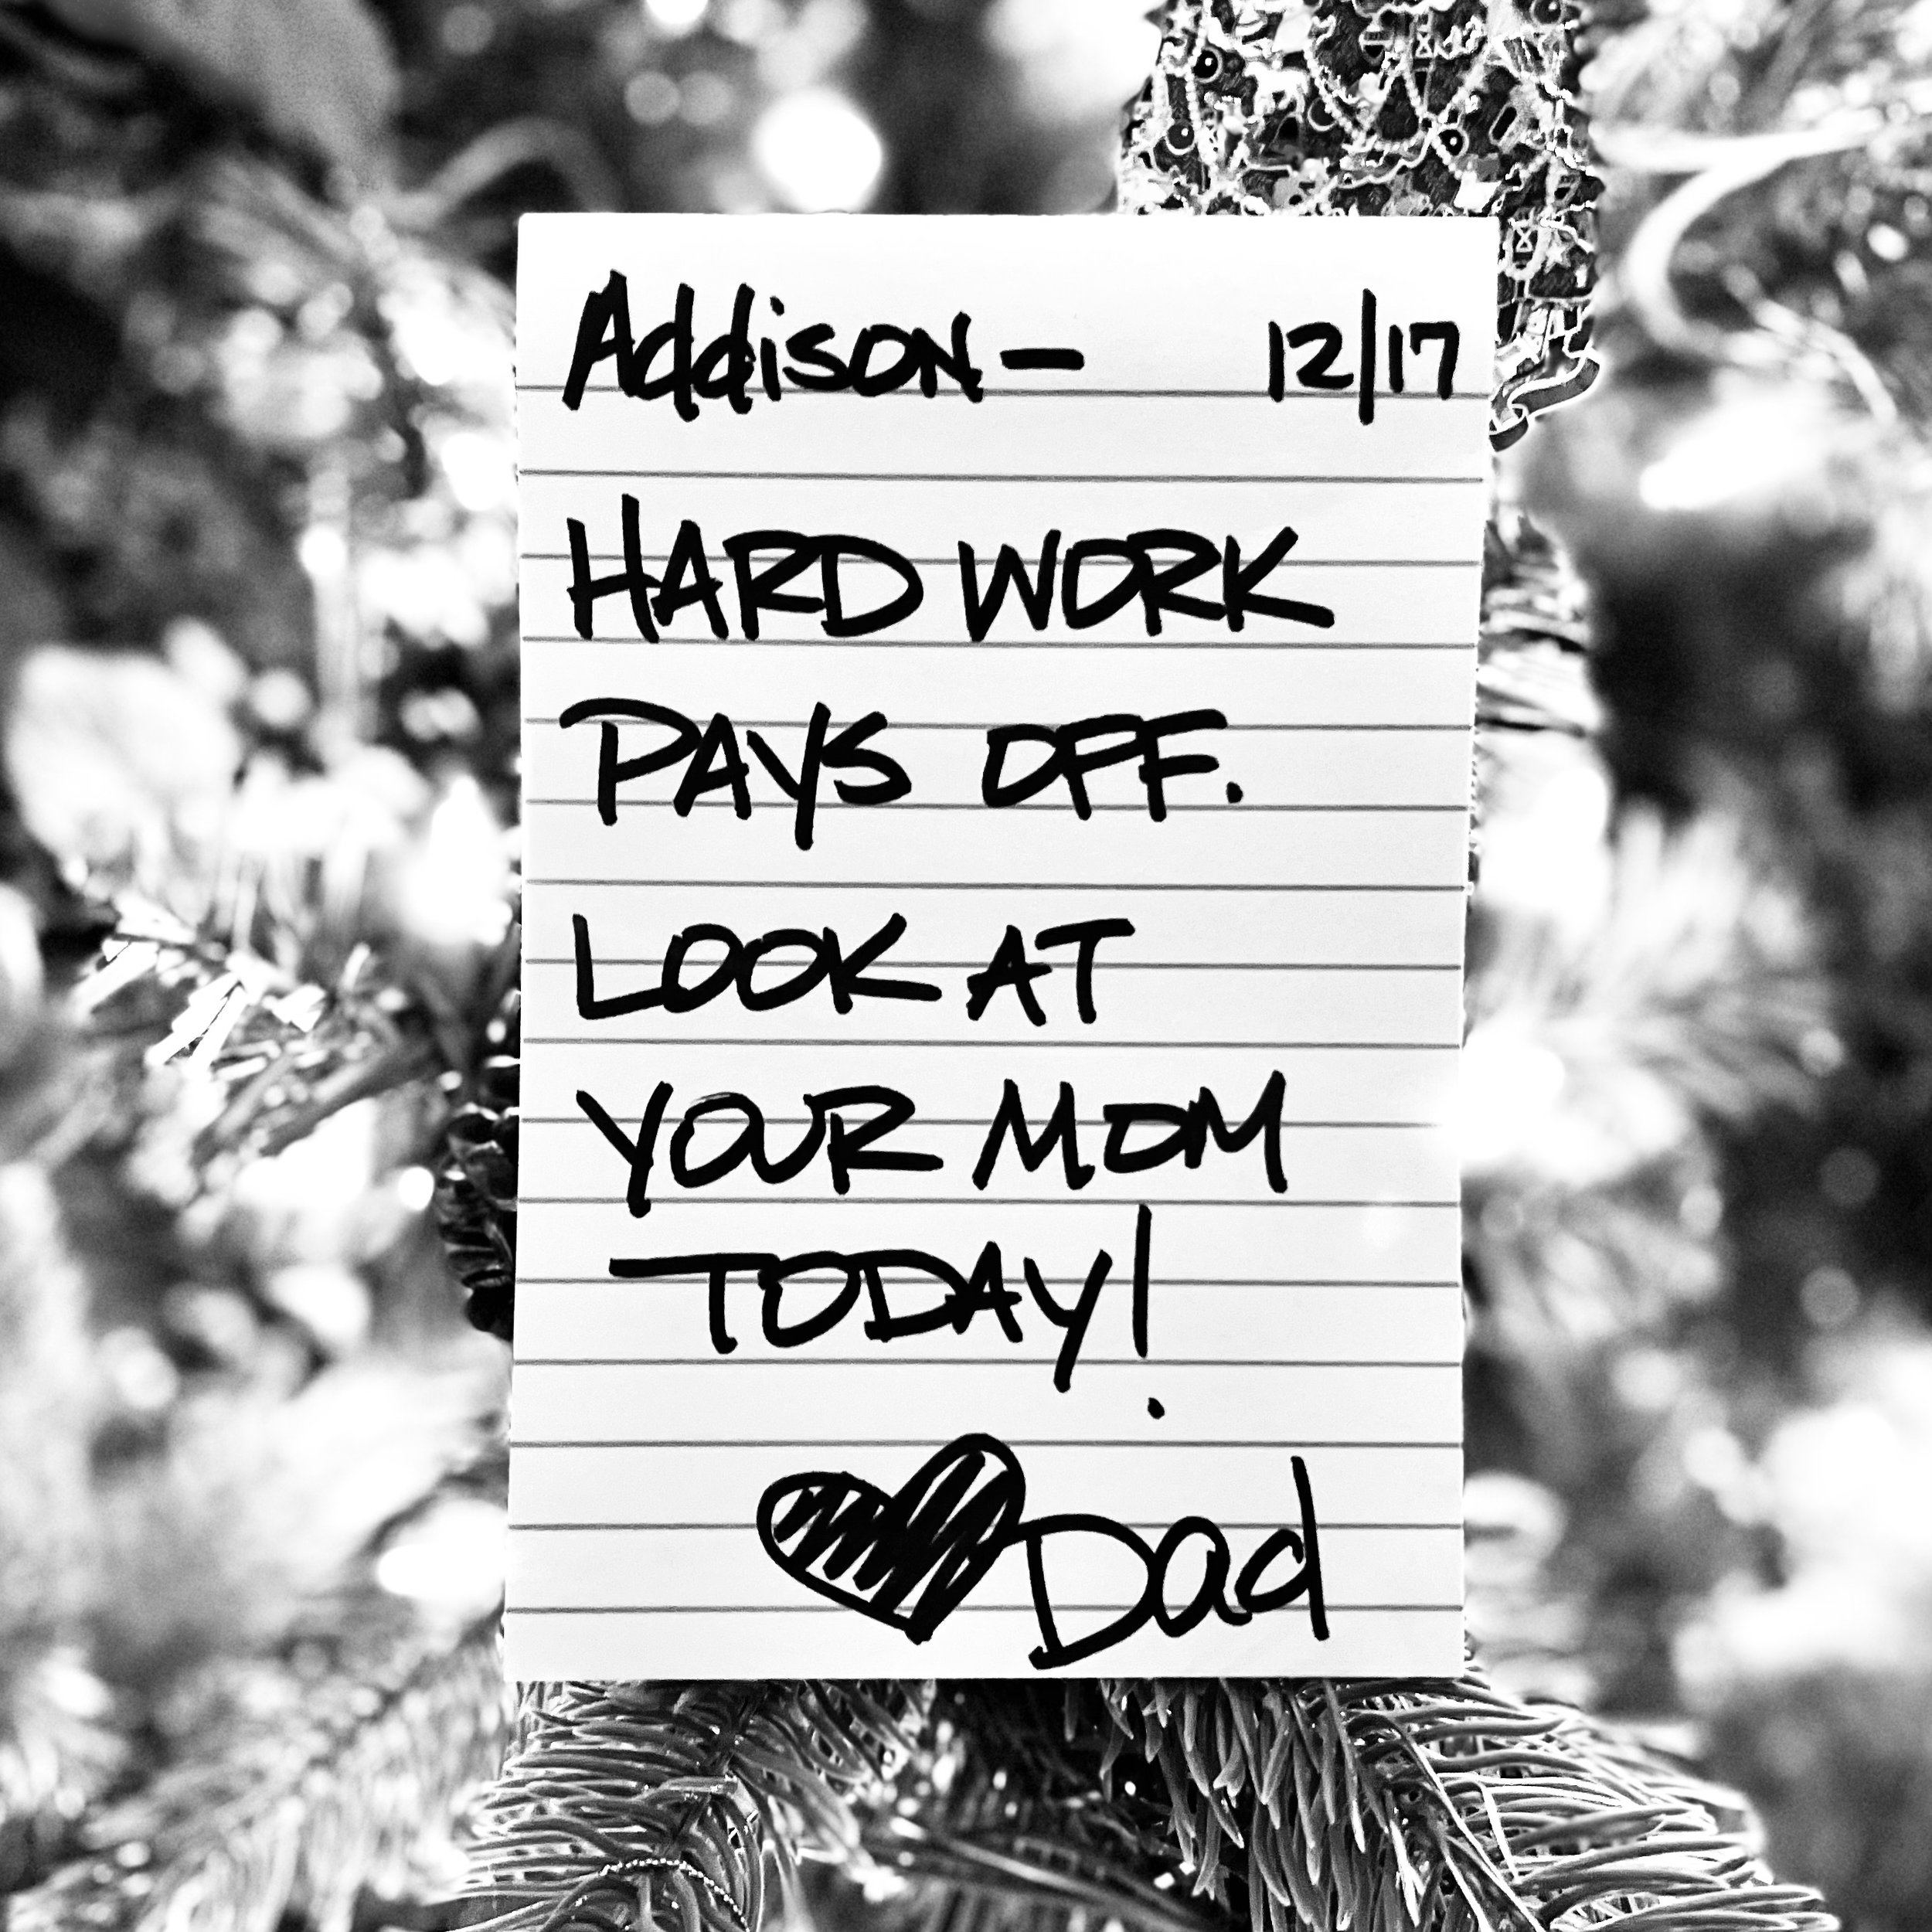 Addison — 12/17
HARD WORK
PAYS OFF.
LOOK AT
YOUR MOM
TODAY!
Dad